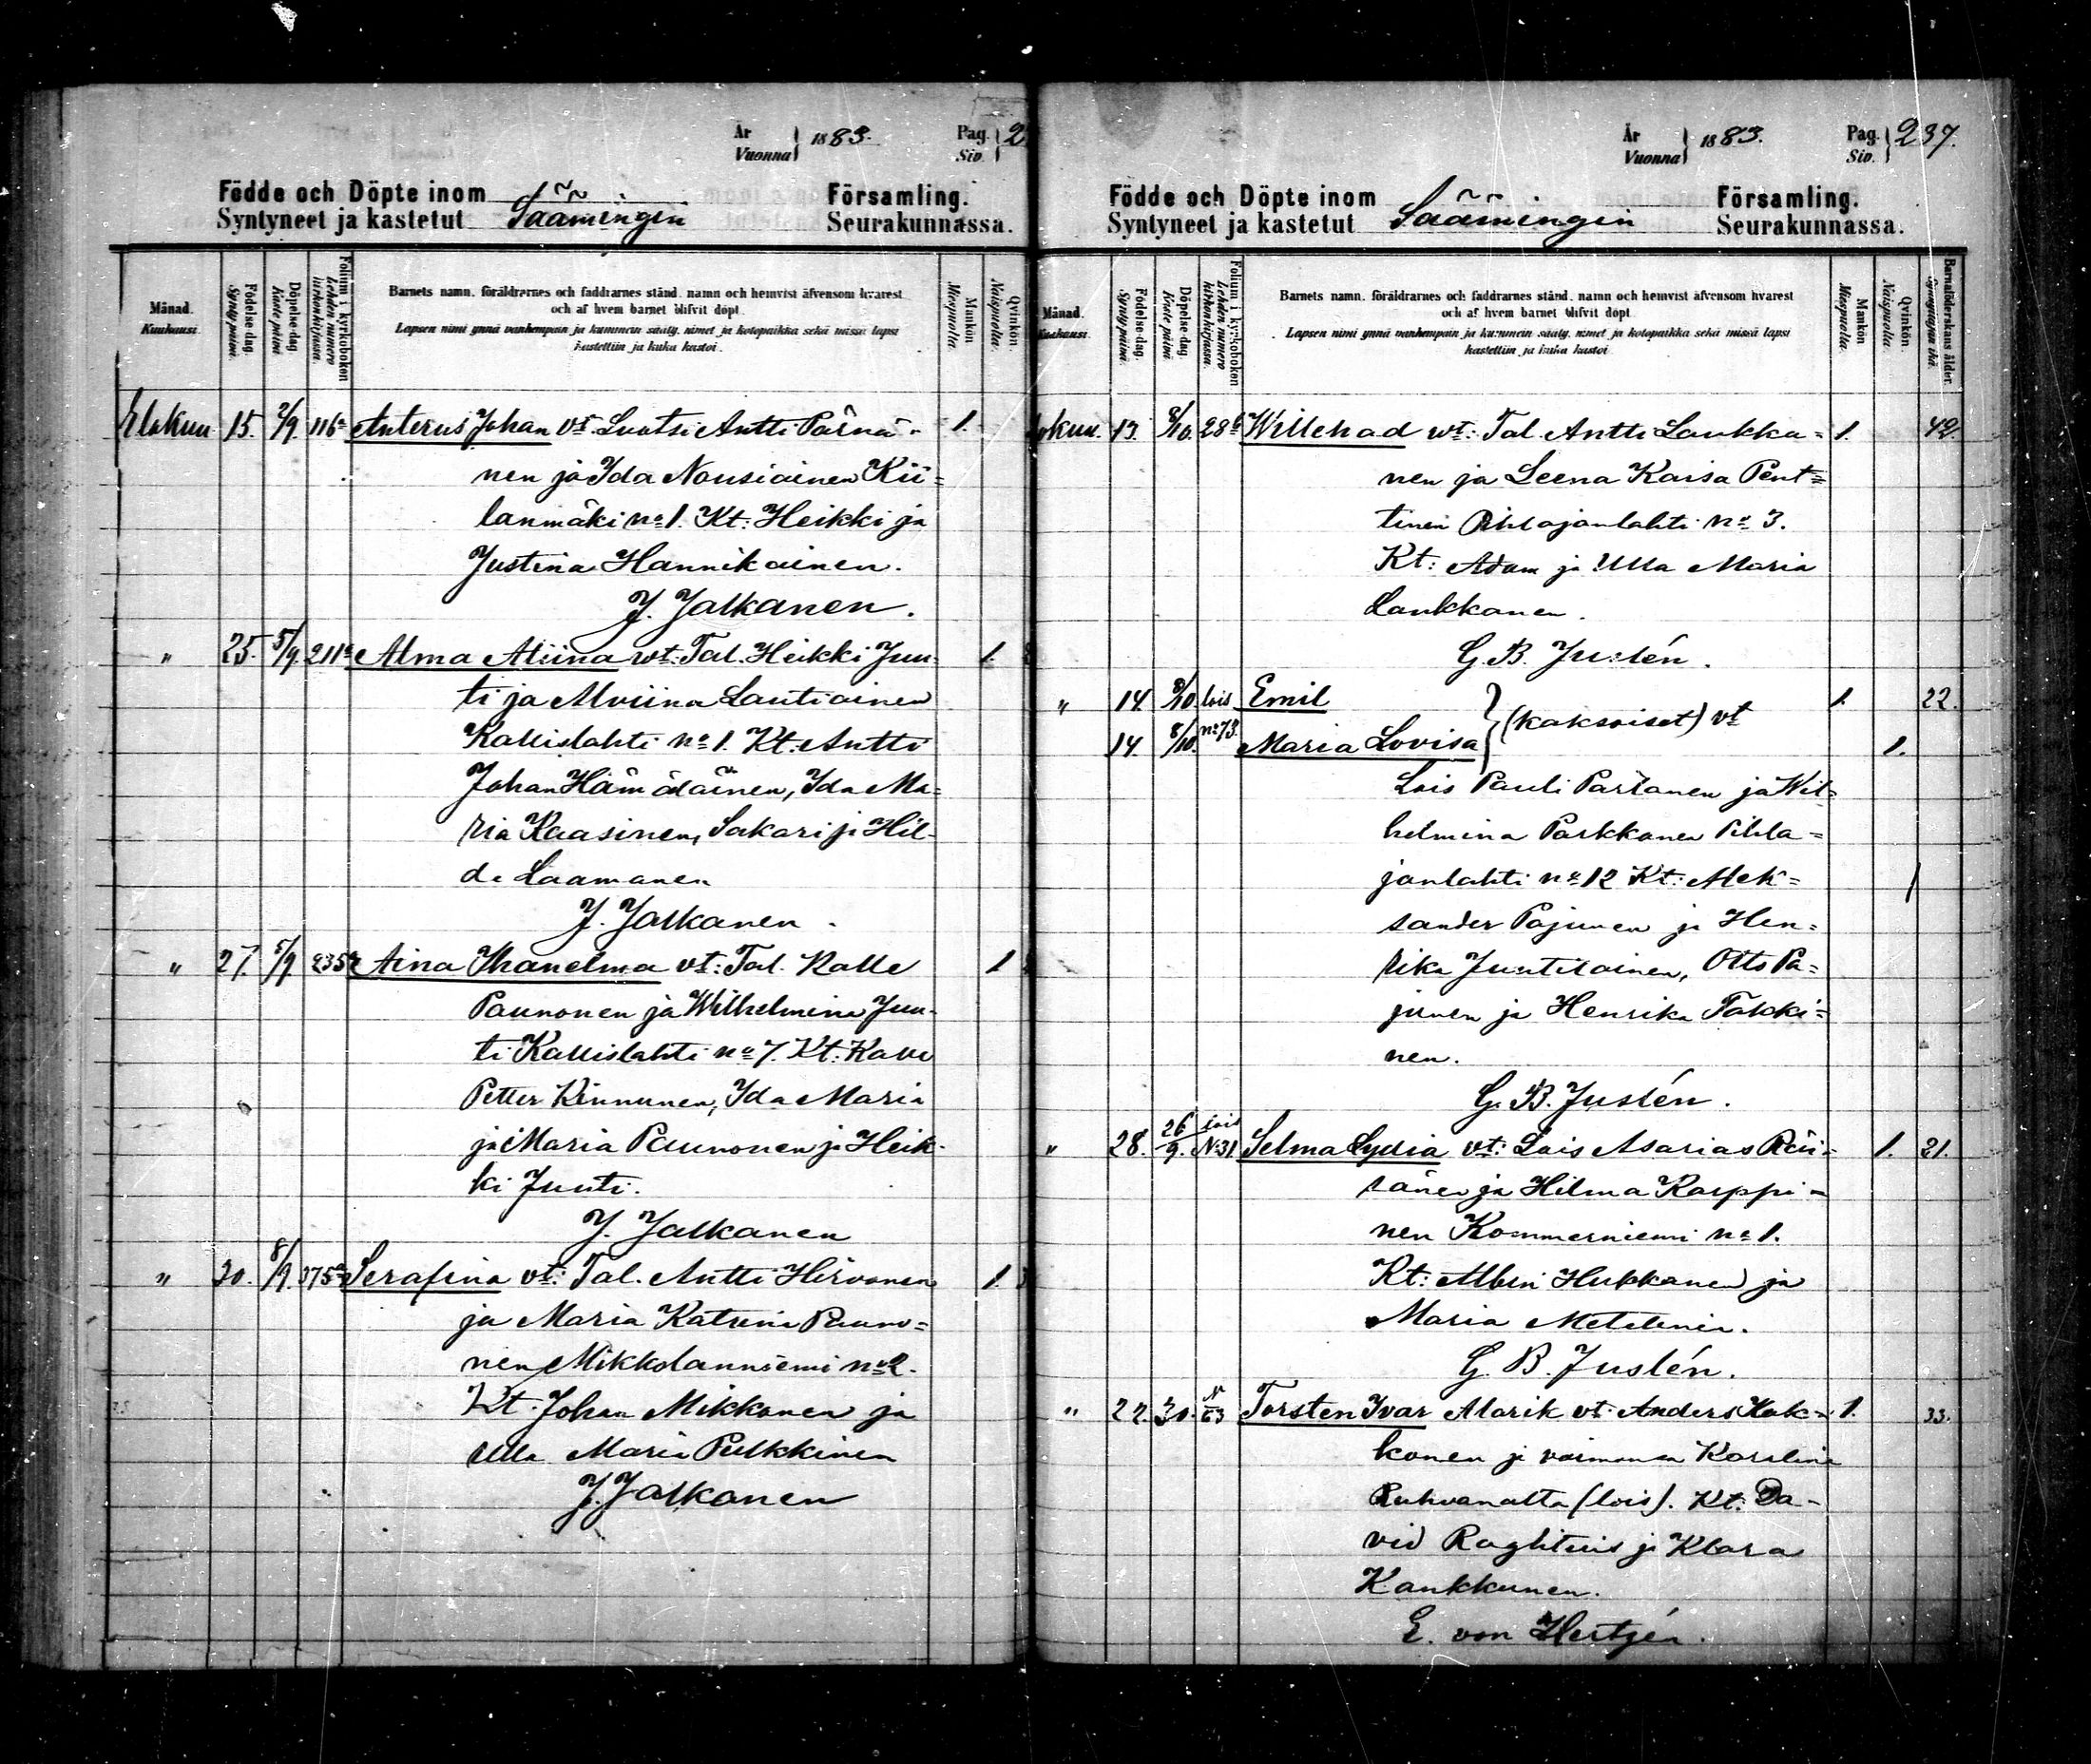 År
Vuonna } 1883.
Pag.
Siv. } 2
Födde och Döpte inom
Syntyneet ja kastetut Säämingin
Församling.
Seurakunnassa.
Månad.
Kuukausi.
Födelse-dag.
Syntypäivä.
Döpelse-dag.
Kaste päivä.
Folium i kyrkoboken
Lehden numero
kirkonkirjassa.
Barnets namn, föräldrarnes och faddrarnes stånd, namn och hemvist äfvensom hvarest
och af hvem barnet blifvit döpt.
Lapsen nimi ynnä vanhempain ja kummein sääty, nimet ja kotopaikka sekä missä lapsi
kastettiin ja kuka kastoi.
Mankön.
Miespuolia.
Qvinkön.
Naispuolia.
Elokuu 15. 2/9. 116a Anterus Johan vt. Luotsi Antti Pärnä- 1.
nen ja Ida Nousiainen Kii=
lanmäki no 1. Kt: Heikki ja
Justina Hannikainen.
J. Jalkanen.
" 25. 5/9. 211a Alma Aliina vt: Tal. Heikki Juu- 1.
ti ja Alviina Lautiainen
Kallislahti no 1. Kt: Antti
Johan Hämäläinen, Ida Ma=
ria Kaasinen, Sakari ja Hil-
da Laamanen
J. Jalkanen.
" 27. 5/9 235a Aina Ihanelma vt: Tal. Kalle 1
Paunonen ja Wilhelmina Juu-
ti Kallislahti no 7. Kt: Kalle
Petter Kinnunen, Ida Maria
ja Maria Paunonen ja Heik-
ki Juuti.
J. Jalkanen
" 30. 8/9. 375a Serafina vt: Tal. Antti Hirvonen 1.
ja Maria Katrina Pauno=
nen Mikkolanniemi no 2.
Kt. Johan Mikkonen ja
Ulla Maria Pulkkinen
J. Jalkanen
År
Vuonna } 1883.
Pag.
Siv. } 237.
Födde och Döpte inom
Syntyneet ja kastetut Säämingin
Församling.
Seurakunnassa.
Månad.
Kuukausi.
Födelse-dag.
Syntypäivä.
Döpelse-dag.
Kaste päivä.
Folium i kyrkoboken
Lehden numero
kirkonkirjassa.
Barnets namn, föräldrarnes och faddrarnes stånd, namn och hemvist äfvensom hvarest
och af hvem barnet blifvit döpt.
Lapsen nimi ynnä vanhempain ja kummein sääty, nimet ja kotopaikka sekä missä lapsi
kastettiin ja kuka kastoi.
Mankön.
Miespuolia.
Qvinkön.
Naispuolia.
Barnaföderskans ålder.
Synnyttäjän ikä.
okuu. 13. 8/10. 28b Willehad vt: Tal. Antti Laukka= 1. 42.
nen ja Leena Kaisa Pent=
tinen Pihlajanlahti no 3.
Kt: Adam ja Ulla Maria
Laukkanen.
G. B. Justén.
" 14. 8/10. lois Emil 1. 22.
} (kaksoiset) vt
14. 8/10. no 73. Maria Lovisa 1.
Lois Pauli Partanen ja Wil=
helmina Parkkonen Pihla=
janlahti no 12 Kt: Alek=
sander Pajunen ja Hen=
rika Juutilainen, Otto Pa=
junen ja Henrika Takki=
nen.
G. B. Justén.
" 28. 26/9. lois N:31 Selma Lydia vt: Lois Asarias Räi- 1. 21.
sänen ja Hilma Karppi-
nen Kommerniemi no 1.
Kt: Albin Hukkanen ja
Maria
G. B. Justén.
" 22. 30. N 63 Torsten Ivar Alarik vt. Anders Kok- 1. 33.
konen ja vaimonsa Karolina
(lois). Kt: Da-
vid ja Klara
Kankkunen.
E. von Hertzén.